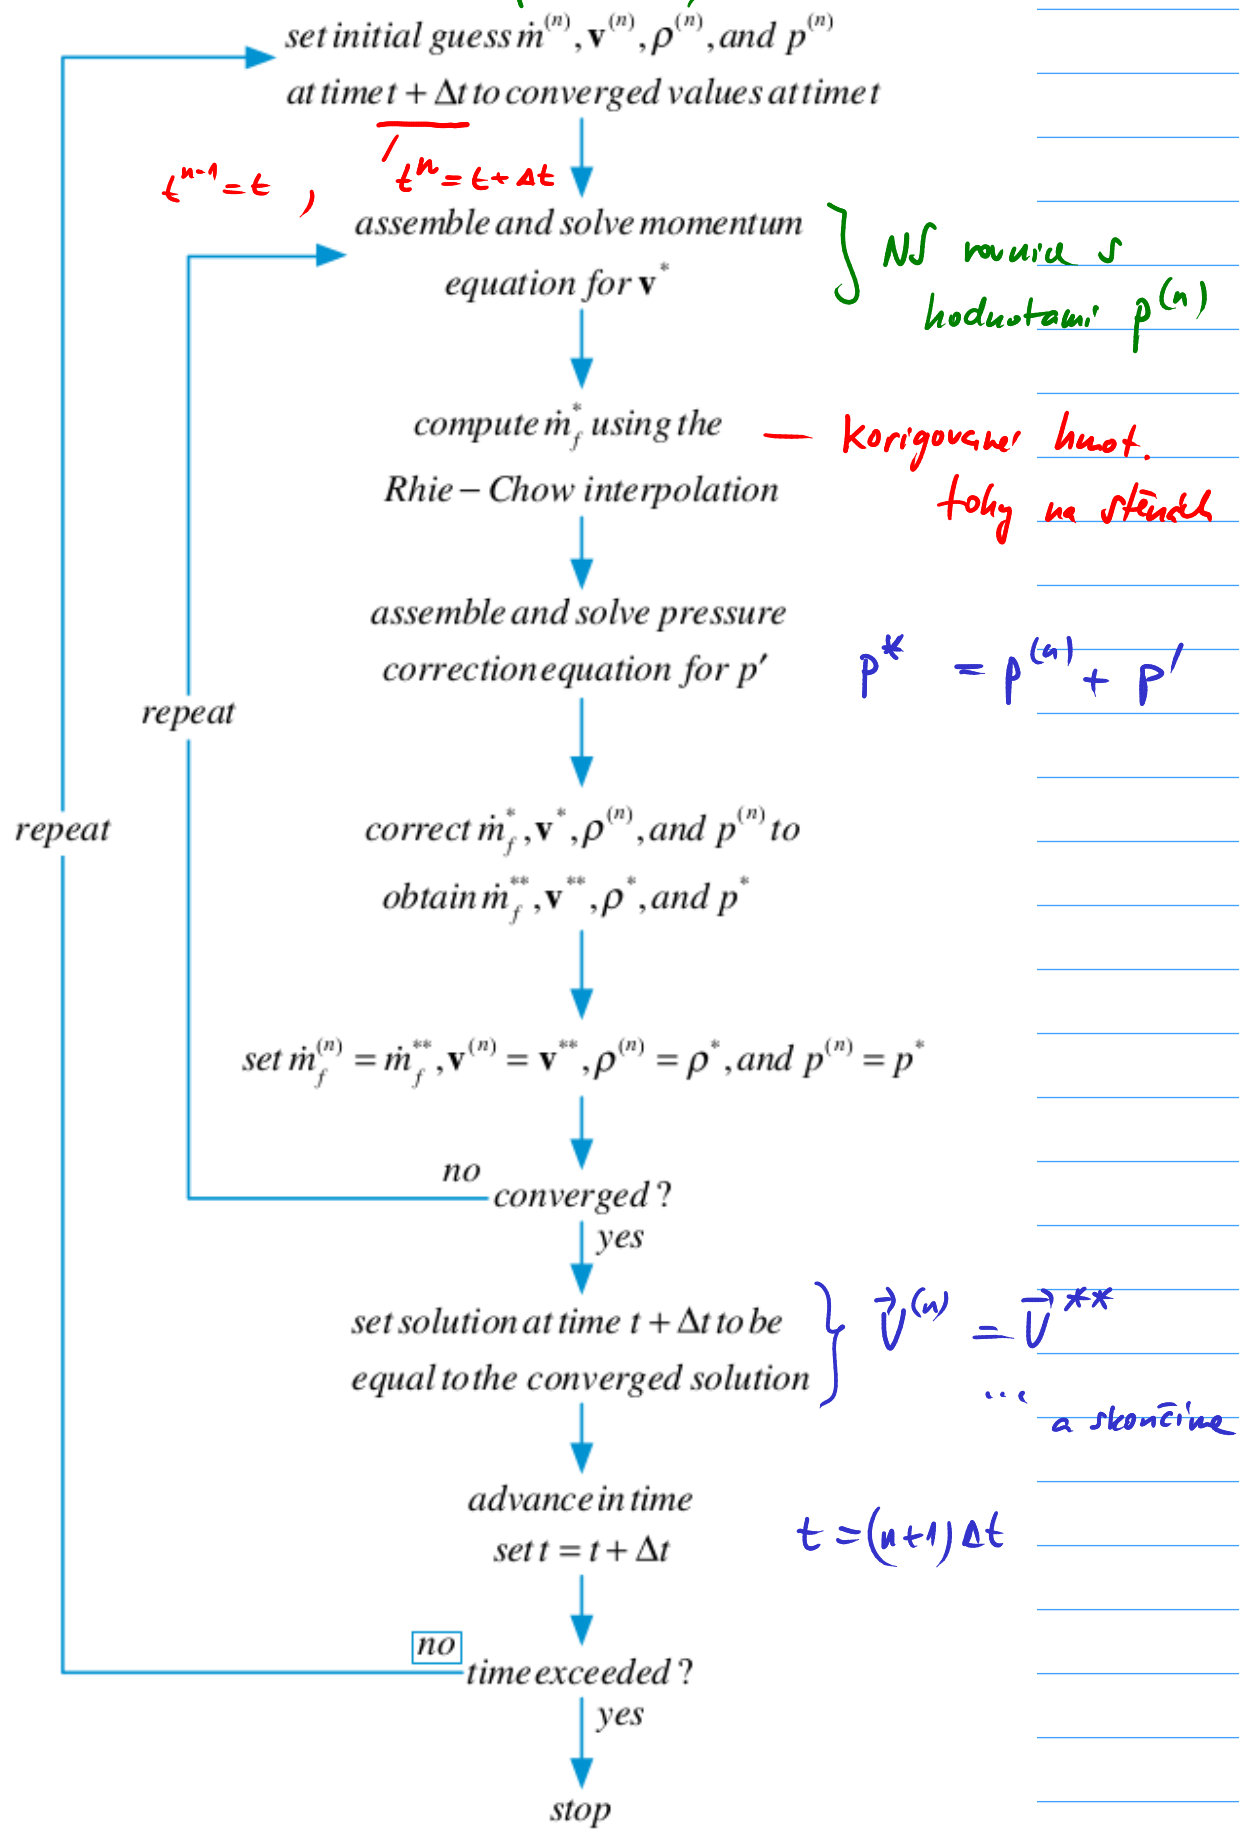 set initial guess ṁ⁽ⁿ⁾, v⁽ⁿ⁾, ρ⁽ⁿ⁾, and p⁽ⁿ⁾
at time t + Δt to converged values at time t
tⁿ⁻¹ = t , tⁿ = t + Δt
assemble and solve momentum
equation for v*
} NS rovnice s
hodnotami p⁽ⁿ⁾
compute ṁ_f* using the
Rhie – Chow interpolation
— korigované hmot.
toky na stěnách
assemble and solve pressure
correction equation for p′
p* = p⁽ⁿ⁾ + p′
repeat
repeat
correct ṁ_f*, v*, ρ⁽ⁿ⁾, and p⁽ⁿ⁾ to
obtain ṁ_f**, v**, ρ*, and p*
set ṁ_f⁽ⁿ⁾ = ṁ_f**, v⁽ⁿ⁾ = v**, ρ⁽ⁿ⁾ = ρ*, and p⁽ⁿ⁾ = p*
no
converged ?
yes
set solution at time t + Δt to be
equal to the converged solution
} v⃗⁽ⁿ⁾ = v⃗**
... a skončíme
advance in time
set t = t + Δt
t = (n+1) Δt
no
time exceeded ?
yes
stop